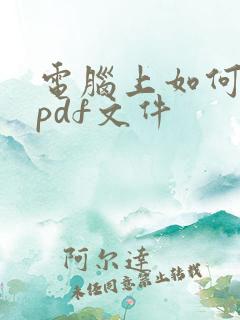 電腦上如何
pdf文件
阿尔達
未经同意禁止转载